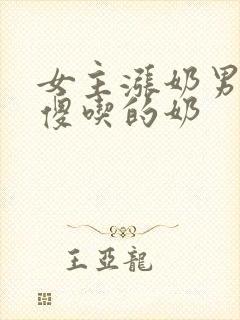 女主漲奶男
傻喫的奶
王亞龍